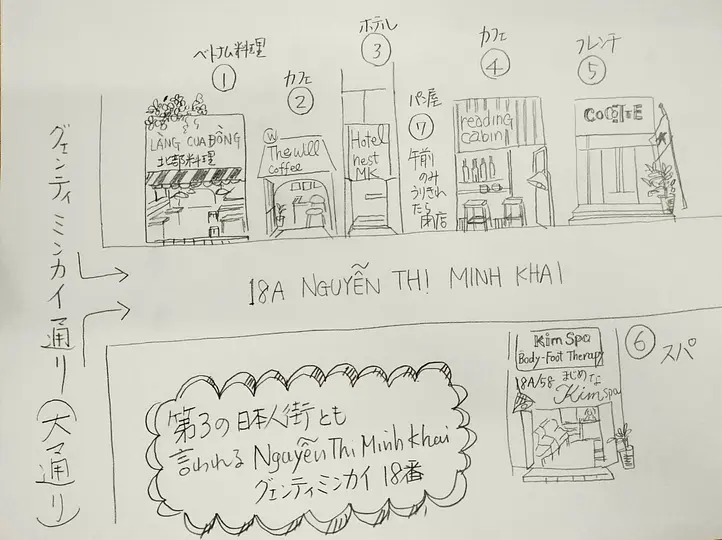 ベトナム料理
①
LÀNG CUA ĐỒNG
北部料理
カフェ
②
W
The Will
coffee
ホテル
③
Hotel
nest
MK
パン屋
⑦
午前
のみ
うりきれ
たら
閉店
カフェ
④
reading
cabin
フレンチ
⑤
COCOTTE
グェンティミンカイ通り(大通り)
18A NGUYỄN THỊ MINH KHAI
第3の日本人街とも
言われる Nguyễn Thi Minh Khai
グェンティミンカイ 18番
Kim Spa
Body-Foot Therapy
18A/58 まじめな
Kim spa
⑥
スパ